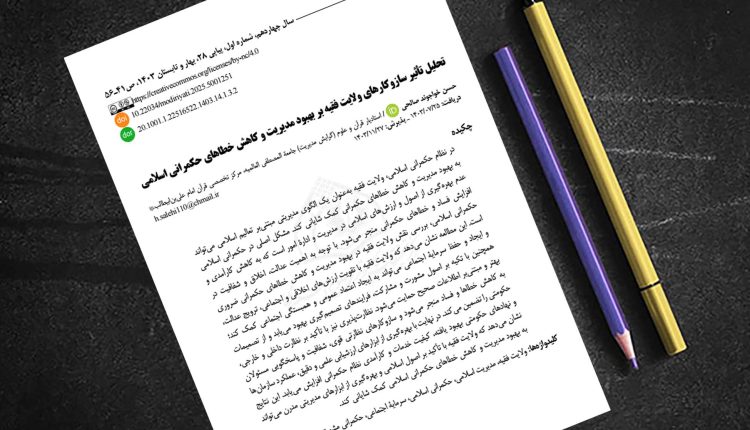 سال چهاردهم، شماره اول، پیاپی ۲۸، بهار و تابستان ۱۴۰۳، ص ۴۱ـ۵۶
https://creativecommons.org/licenses/by-nc/4.0
doi 10.22034/modiriyati.2025.5001251
dor 20.1001.1.22516522.1403.14.1.3.2
تحلیل تأثیر سازوکارهای ولایت فقیه بر بهبود مدیریت و کاهش خطاهای حکمرانی اسلامی
حسن خواجوند صالحی iD / استادیار قرآن و علوم (گرایش مدیریت) جامعة المصطفی العالمیه، مرکز تخصصی قرآن امام علی‌بن‌ابیطالب
دریافت: ۱۴۰۳/۰۷/۲۵ ـ پذیرش: ۱۴۰۳/۱۱/۲۷
h.salehi110@chmail.ir
چکیده
در نظام حکمرانی اسلامی، ولایت فقیه به‌عنوان یک الگوی مدیریتی مبتنی‌بر تعالیم اسلامی می‌تواند
به بهبود مدیریت و کاهش خطاهای حکمرانی کمک شایانی کند. مشکل اصلی در حکمرانی اسلامی
عدم بهره‌گیری از اصول و ارزش‌های اسلامی در مدیریت و ادارۀ امور است که به کاهش کارآمدی و
افزایش فساد و خطاهای حکمرانی منجر می‌شود. با توجه به اهمیت عدالت، اخلاق و شفافیت در
حکمرانی اسلامی، بررسی نقش ولایت فقیه در بهبود مدیریت و کاهش خطاهای حکمرانی ضروری
است. این مطالعه نشان می‌دهد که ولایت فقیه با تقویت ارزش‌های اخلاقی و اجتماعی، ترویج عدالت،
و ایجاد و حفظ سرمایۀ اجتماعی می‌تواند به ایجاد اعتماد عمومی و همبستگی اجتماعی کمک کند؛
همچنین با تکیه بر اصول مشورت و مشارکت، فرایندهای تصمیم‌گیری بهبود می‌یابد و از تصمیمات
بهتر و مبتنی‌بر اطلاعات صحیح حمایت می‌شود. نظارت‌پذیری نیز با تأکید بر نظارت داخلی و خارجی،
به کاهش خطاها و فساد منجر می‌شود و سازوکارهای نظارتی قوی، شفافیت و پاسخگویی مسئولان
حکومتی را تضمین می‌کند. در نهایت با بهره‌گیری از ابزارهای ارزشیابی علمی و دقیق، عملکرد سازمان‌ها
و نهادهای حکومتی بهبود یافته، کیفیت خدمات و کارآمدی نظام حکمرانی افزایش می‌یابد. این نتایج
نشان می‌دهد که ولایت فقیه با تأکید بر اصول اسلامی و بهره‌گیری از ابزارهای مدیریتی مدرن می‌تواند
به بهبود مدیریت و کاهش خطاهای حکمرانی اسلامی کمک شایانی کند.
کلیدواژه‌ها: ولایت فقیه، مدیریت اسلامی، حکمرانی اسلامی، سرمایۀ اجتماعی، حکمرانی